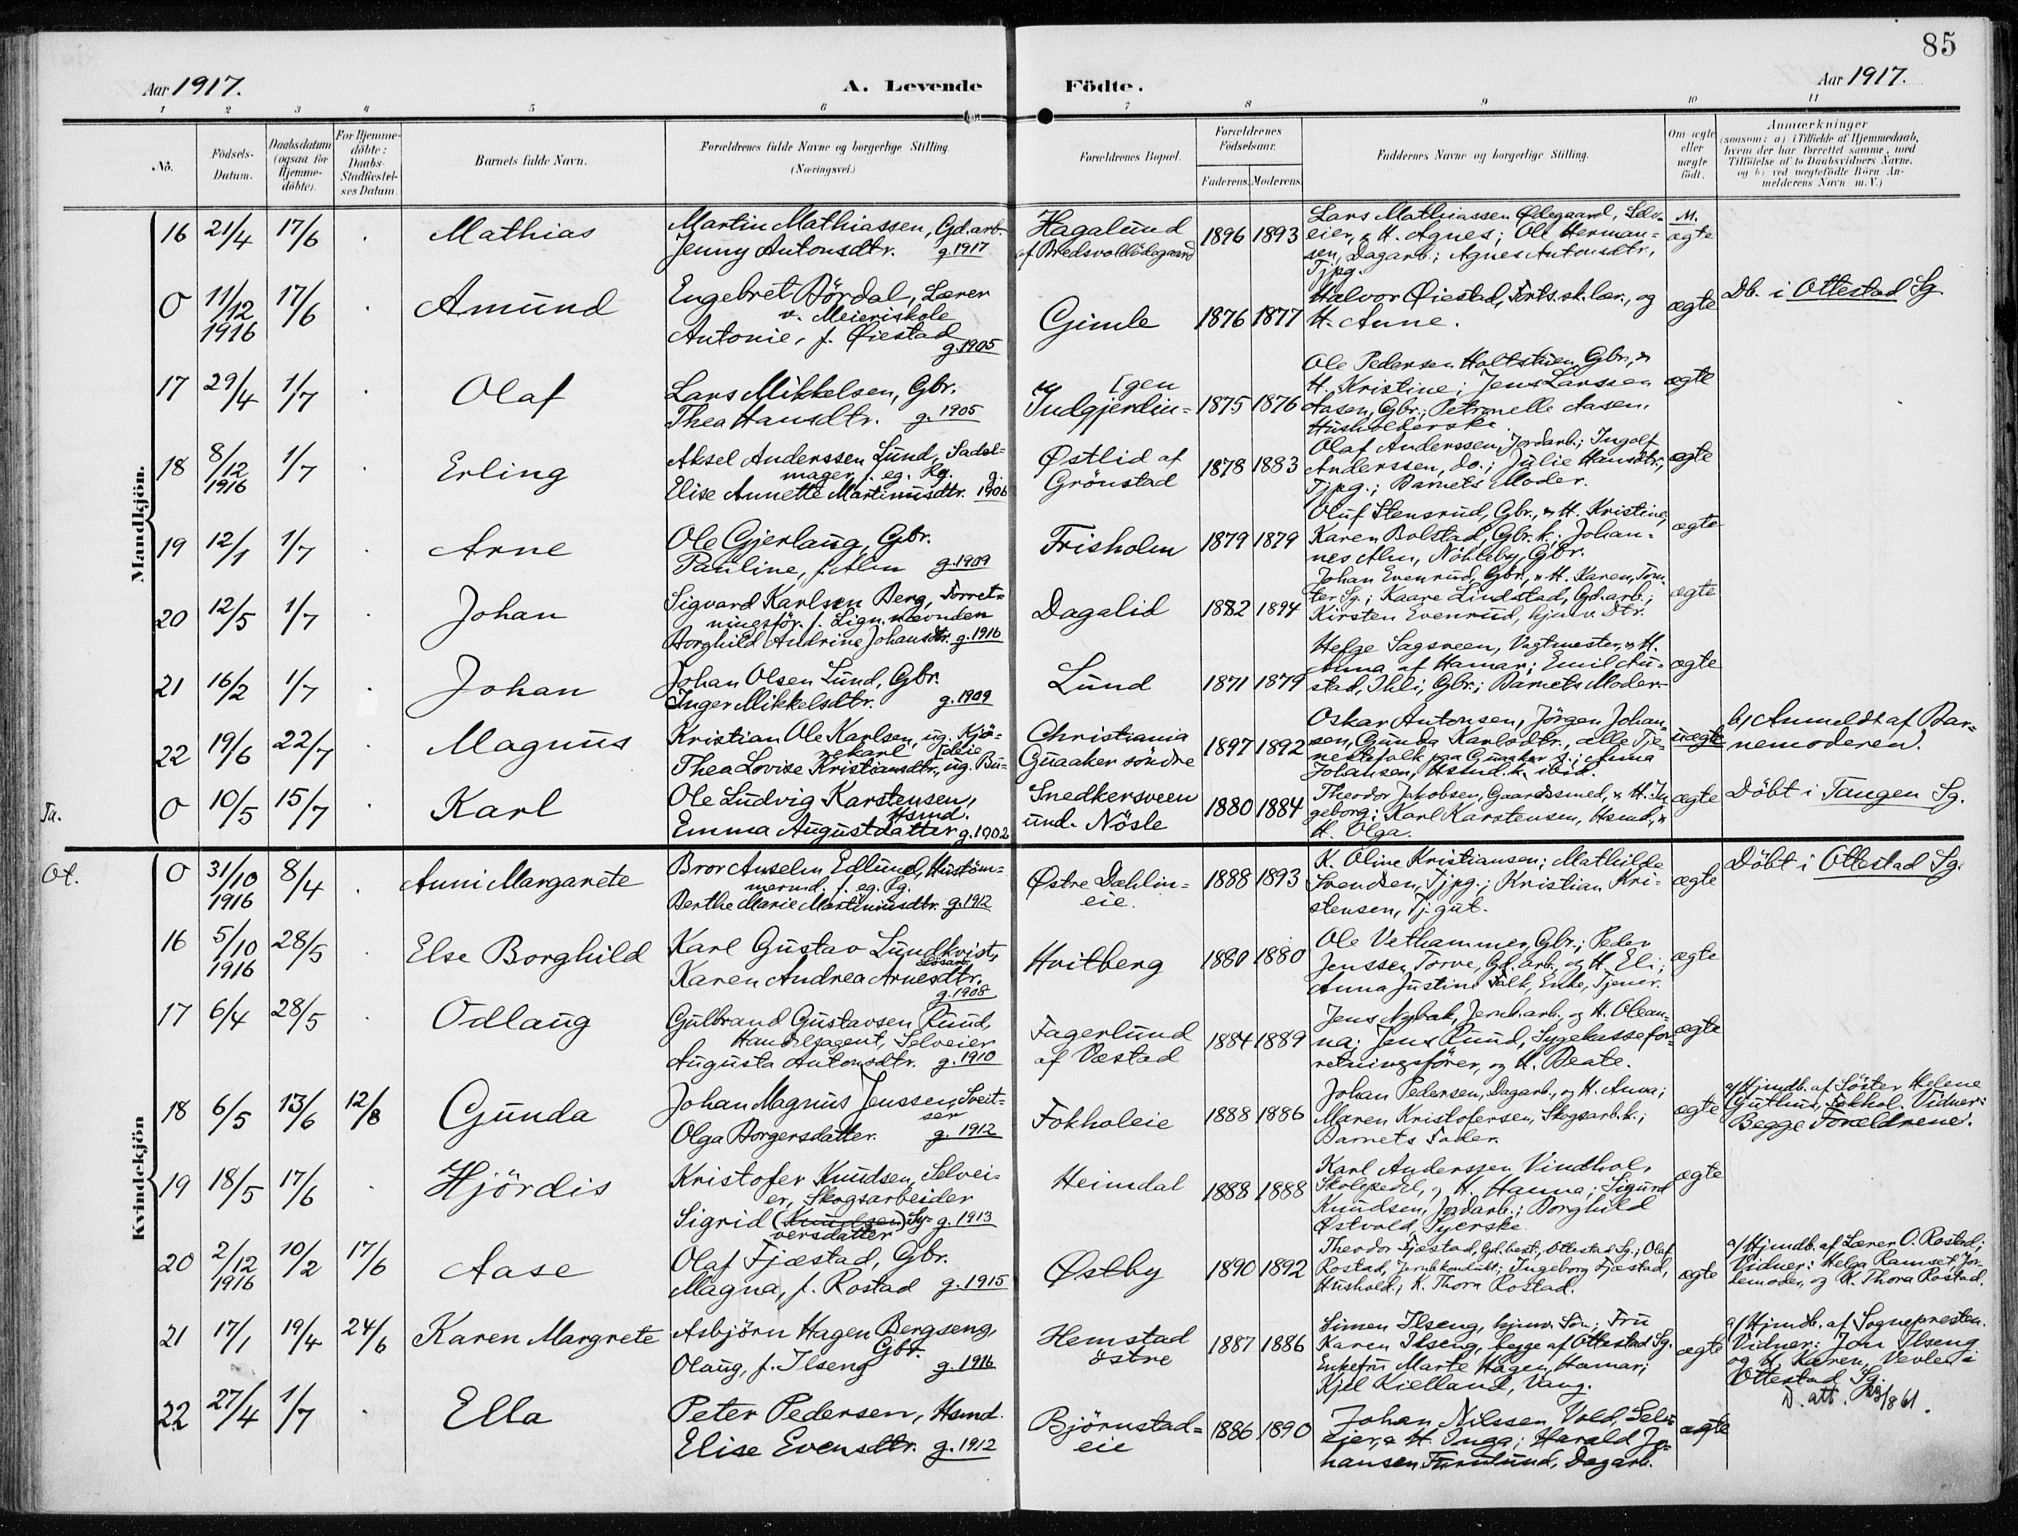 85
Aar 1917.
A. Levende Födte.
Aar 1917.
1 2 3 4 5 6 7 8 9 10 11
No.
Födsels-Datum.
Daabsdatum (ogsaa for Hjemme-döbte).
For Hjemme-döbte: Daabs-Stadfæstel-ses Datum.
Barnets fulde Navn.
Forældrenes fulde Navne og borgerlige Stilling. (Næringsvei.)
Forældrenes Bopæl.
Forældrenes Födselsaar.
Faderens. Moderens.
Faddernes Navne og borgerlige Stilling.
Om ægte eller uægte födt.
Anmærkninger
(saasom: a) i Tilfælde af Hjemmedaab,
hvem der har forrettet samme, med
Tilföielse af to Daabsvidners Navne.
og b) ved uægtefödte Börn An-
melderens Navn m.V.)
Mandkjön.
16 21/4 17/6 Mathias
Martin Mathiassen, Gd.arb.
Jenny Antonsdtr. g. 1917
Hagalund
af Bredsvollödegaard
1896 1893
Lars Mathiassen Ødegaard, Selv-
eier, & H. Agnes; Ole Herman-
sen, Dagarb.; Agnes Antonsdtr.,
Tjpg.
M.
ægte
O 11/12 1916 17/6 Amund
Engebret Dördal, Lærer
v. Meieriskole
Antonie, f. Øiestad
g. 1905
Gimle
1876 1877
Halvor Øiestad, Forts.sk.lær., og
H. Anne.
ægte
Db. i Ottestad Sg.
17 29/4 1/7 Olaf
Lars Mikkelsen, Gbr.
Thea Hansdtr. g. 1905
[gen
Indgjerdin=
1875 1876
Ole Pedersen Holtstuen, Gbr., &
H. Kristine; Jens Larssen
Aasen, Gbr.; Petronelle Aasen,
Husholderske.
ægte
18 8/12 1916 1/7 Erling
Aksel Anderssen Lund, Sadel-
mager f. eg. Rg.
Elise Annette Martinusdtr. g. 1906
Østlid af
Grönstad
1878 1883
Olaf Anderssen, Jordarb.; Ingolf
Anderssen, do.; Julie Hansdtr.,
Tjpg.; Barnets Moder.
ægte
19 12/1 1/7 Arne
Ole Gjerlaug, Gbr.
Pauline, f. Alm g. 1909
Frisholm
1879 1879
Oluf Stensrud, Gbr., & H. Kristine,
Karen Bolstad, Gbr.k.; Johan-
nes Alm, Nöhleby, Gbr.
ægte
20 12/5 1/7 Johan
Sigvard Karlsen Berg, Forret-
ningsför. f. Lign.nævnden
Borghild Andrine Johansdtr. g. 1916
Dagalid
1882 1894
Johan Evenrud, Gbr., & H. Karen, Tom-
ter Sg.; Kaare Lindstad, Gd.arb.;
Kirsten Evenrud, hjmv. Dtr.
ægte
21 16/2 1/7 Johan
Johan Olsen Lund, Gbr.
Inger Mikkelsdtr. g. 1909
Lund
1871 1879
Helge Sagsveen, Vagtmester, & H.
Anna af Hamar; Emil Au-
stad, Ihli, Gbr.; Barnets Moder.
ægte
22 19/6 22/7 Magnus
Kristian Ole Karlsen, ug. Kjö-
rekarl
Thea Lovise Kristiansdtr., ug. Bu-
deie
Christiania
Guaaker söndre
1897 1892
Oskar Antonsen, Jörgen Johan-
sen, Gunda Karlsdtr., alle Tje-
nestefolk paa Guaaker s.; Anna
Johansen, Hsmd.k. ibid.
uægte
b) Anmeldt af Bar-
nemoderen.
Ta.
O 10/5 15/7 Karl
Ole Ludvig Karstensen,
Hsmd.
Emma Augustdatter g. 1902
Snedkersveen
und. Nösle
1880 1884
Theodor Jakobsen, Gaardssmed, & H. In-
geborg; Karl Karstensen, Hsmd., &
H. Olga.
ægte
Döbt i Tangen Sg.
Kvindekjön
Ot.
O 31/10 1916 8/4 Anni Margarete
Bror Anselm Edlund, Hustöm-
mermd. f. eg. Rg.
Berthe Marie Martiniusdtr. g. 1912
Østre Dæhlin-
eie.
1888 1893
K. Oline Kristiansen; Mathilde
Svendsen, Tjpg.; Kristian Kri-
stensen, Tj.gut.
ægte
Döbt i Ottestad Sg.
16 5/10 1916 28/5 Else Borghild
Karl Gustav Lundkvist,
Lösarb.
Karen Andrea Arnesdtr.
g. 1908
Hvitberg
1880 1880
Ole Vethammer, Gbr.; Peder
Jenssen Torve, Gd.arb., og H. Eli;
Anna Justine Falk, Enke, Tjener.
ægte
17 6/4 28/5 Odlaug
Gulbrand Gustavsen Ruud,
Handelsagent, Selveier
Augusta Antonsdtr. g. 1910
Fagerlund
af Væstad
1884 1889
Jens Nybak, Jernb.arb., og H. Olean-
na; Jens Ruud, Sygekassefor-
retningsförer, og H. Beate.
ægte
18 6/5 13/6 12/8 Gunda
Johan Magnus Jenssen, Sveit-
ser
Olga Borgersdatter. g. 1912
Fokholeie
1888 1886
Johan Pedersen, Dagarb., og H. Anna;
Maren Kristofersen, Skogsarb.k.;
Barnets Fader.
ægte
a) Hjmdb. af Söster Helene
Guthus, Fokhol. Vidner:
Begge Forældrene.
19 18/5 17/6 Hjördis
Kristofer Knudsen, Selvei-
er, Skogsarbeider
Sigrid (Knudsen) Sy- g. 1913
versdatter
Heimdal
1888 1888
Karl Anderssen Vindhol,
Skolepedel, og H. Hanna; Sigurd
Knudsen, Jordarb.; Borghild
Østvold, Syerske.
ægte
20 2/12 1916 10/2 17/6 Aase
Olaf Fjæstad, Gbr.
Magna, f. Rostad g. 1915
Østby
1890 1892
Theodor Fjæstad, Gd.best., Ottestad Sg.; Olaf
Rostad, Jernb.kondukt.; Ingeborg Fjæstad,
Hushold.; K. Thora Rostad.
ægte
a) Hjmdb. af Lærer O. Rostad;
Vidner: Helga Ramset, Jor-
demoder, og K. Thora Rostad.
21 17/1 19/4 24/6 Karen Margrete
Asbjörn Hagen Bergseng,
Gbr.
Olaug, f. Ilseng g. 1916
Hemstad
östre
1887 1886
Simen Ilseng, hjmv. Sön; Fru
Karen Ilseng, begge af Ottestad Sg.
Enkefru Marte Hagen, Hamar;
Kjel Kielland, Vang.
ægte
a) Hjmdb. af Sognepresten.
Vidner: Jon Ilseng
og H. Karen, Vevlen i
Ottestad Sg.
D. att. 23/8 61.
22 27/4 1/7 Ella
Peter Pedersen, Hsmd.
Elise Evensdtr. g. 1912
Björnstad=
eie
1886 1890
Johan Nilssen Vold, Selv-
eier, & H. Inga; Harald Jo-
hansen Furulund, Dagarb.
ægte